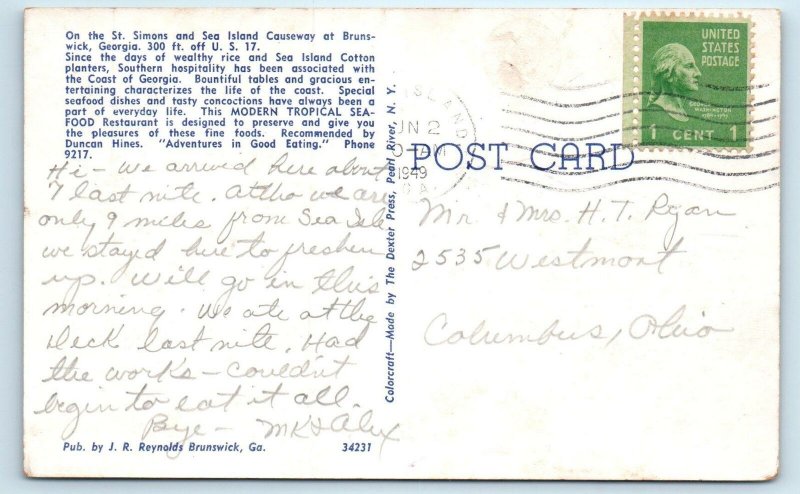 On the St. Simons and Sea Island Causeway at Bruns-
wick, Georgia. 300 ft. off U. S. 17.
Since the days of wealthy rice and Sea Island Cotton
planters, Southern hospitality has been associated with
the Coast of Georgia. Bountiful tables and gracious en-
tertaining characterizes the life of the coast. Special
seafood dishes and tasty concoctions have always been a
part of everyday life. This MODERN TROPICAL SEA-
FOOD Restaurant is designed to preserve and give you
the pleasures of these fine foods. Recommended by
Duncan Hines. "Adventures in Good Eating." Phone
9217.
Hi - We arrived here about
7 last nite. Altho we are
only 9 miles from Sea Isle
we stayed here to freshen
up. Will go in this
morning. We ate at the
Deck last nite. Had
the works - couldn't
begin to eat it all.
Bye - MK & Alex
Pub. by J. R. Reynolds Brunswick, Ga. 34231
Colorcraft—Made by The Dexter Press, Pearl River, N. Y.
POST CARD
ISLAND
JUN 2
1949
UNITED
STATES
POSTAGE
GEORGE
WASHINGTON
1 CENT 1
Mr. & Mrs. H. T. Ryan
2535 Westmont
Columbus, Ohio